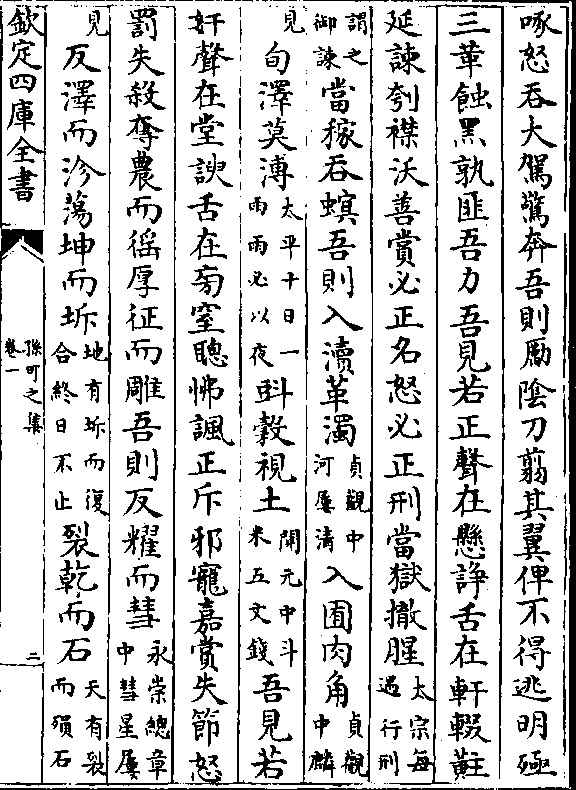 啄怒吞大駕驚奔吾則勵陰刀翦其翼俾不得逃明殛
三革蝕黑孰匪吾力吾見若正聲在懸諍舌在軒輟黈
延諫刳襟沃善賞必正名怒必正刑當獄撤腥太宗每遇行刑
謂之御諫當稼吞螟吾則入瀆革濁貞觀中河屢清入囿肉角貞觀中麟
見旬澤莫溥太平十日一雨雨必以夜斗穀視土開元中斗米五文錢吾見若
奸聲在堂諛舌在旁窒聰怫諷正斥邪寵嘉賞失節怒
罰失殺奪農而徭厚征而雕吾則反耀而彗永崇總章中彗星屢
見反澤而沴蕩坤而坼地有坼而復合終日不止裂乾而石天有裂而殞石
欽定四庫全書
孫可之集
卷一
二